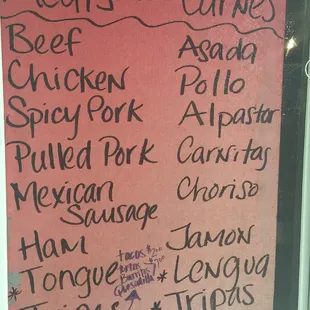 Meats Carnes
Beef Asada
Chicken Pollo
Spicy Pork Alpastor
Pulled Pork Carnitas
Mexican Sausage Choriso
Ham Jamon
*Tongue *Lengua
Tripas Tripas
tacos
tortas
Burritos
Quesadilla